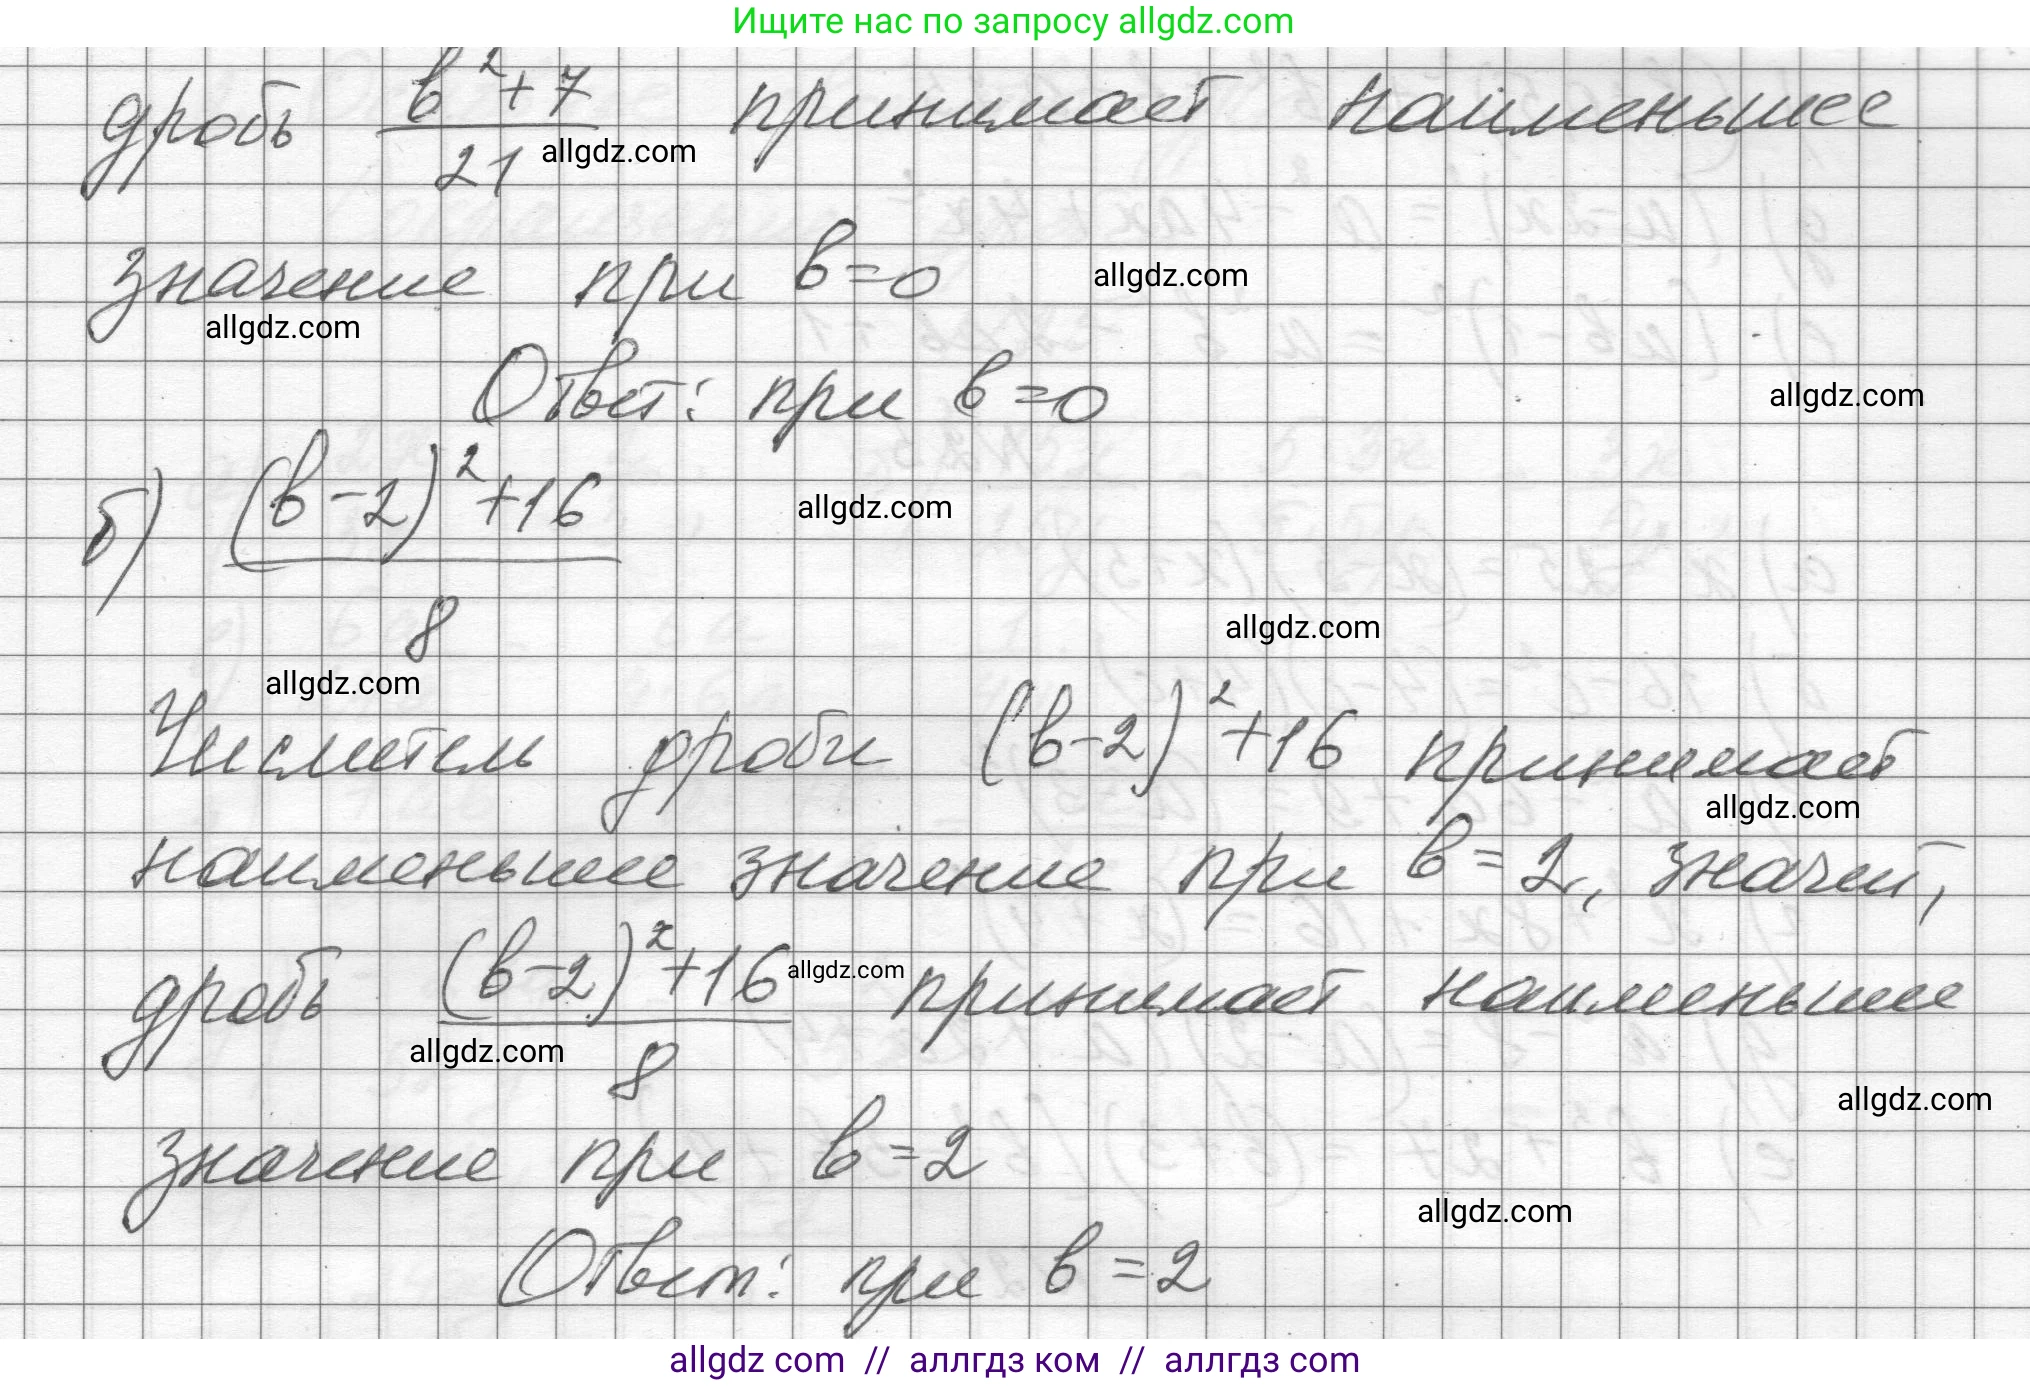 Ищите нас по запросу allgdz.com
дробь (в²+7)/21 принимает наименьшее
allgdz.com
значение при в=0
allgdz.com
allgdz.com
Ответ: при в=0
allgdz.com
б) ((в-2)²+16)/8
allgdz.com
allgdz.com
allgdz.com
Числитель дроби (в-2)²+16 принимает
allgdz.com
наименьшее значение при в=2, значит,
дробь ((в-2)²+16)/8 принимает наименьшее
allgdz.com
allgdz.com
allgdz.com
значение при в=2
allgdz.com
Ответ: при в=2
allgdz com // аллгдз ком // аллгдз com